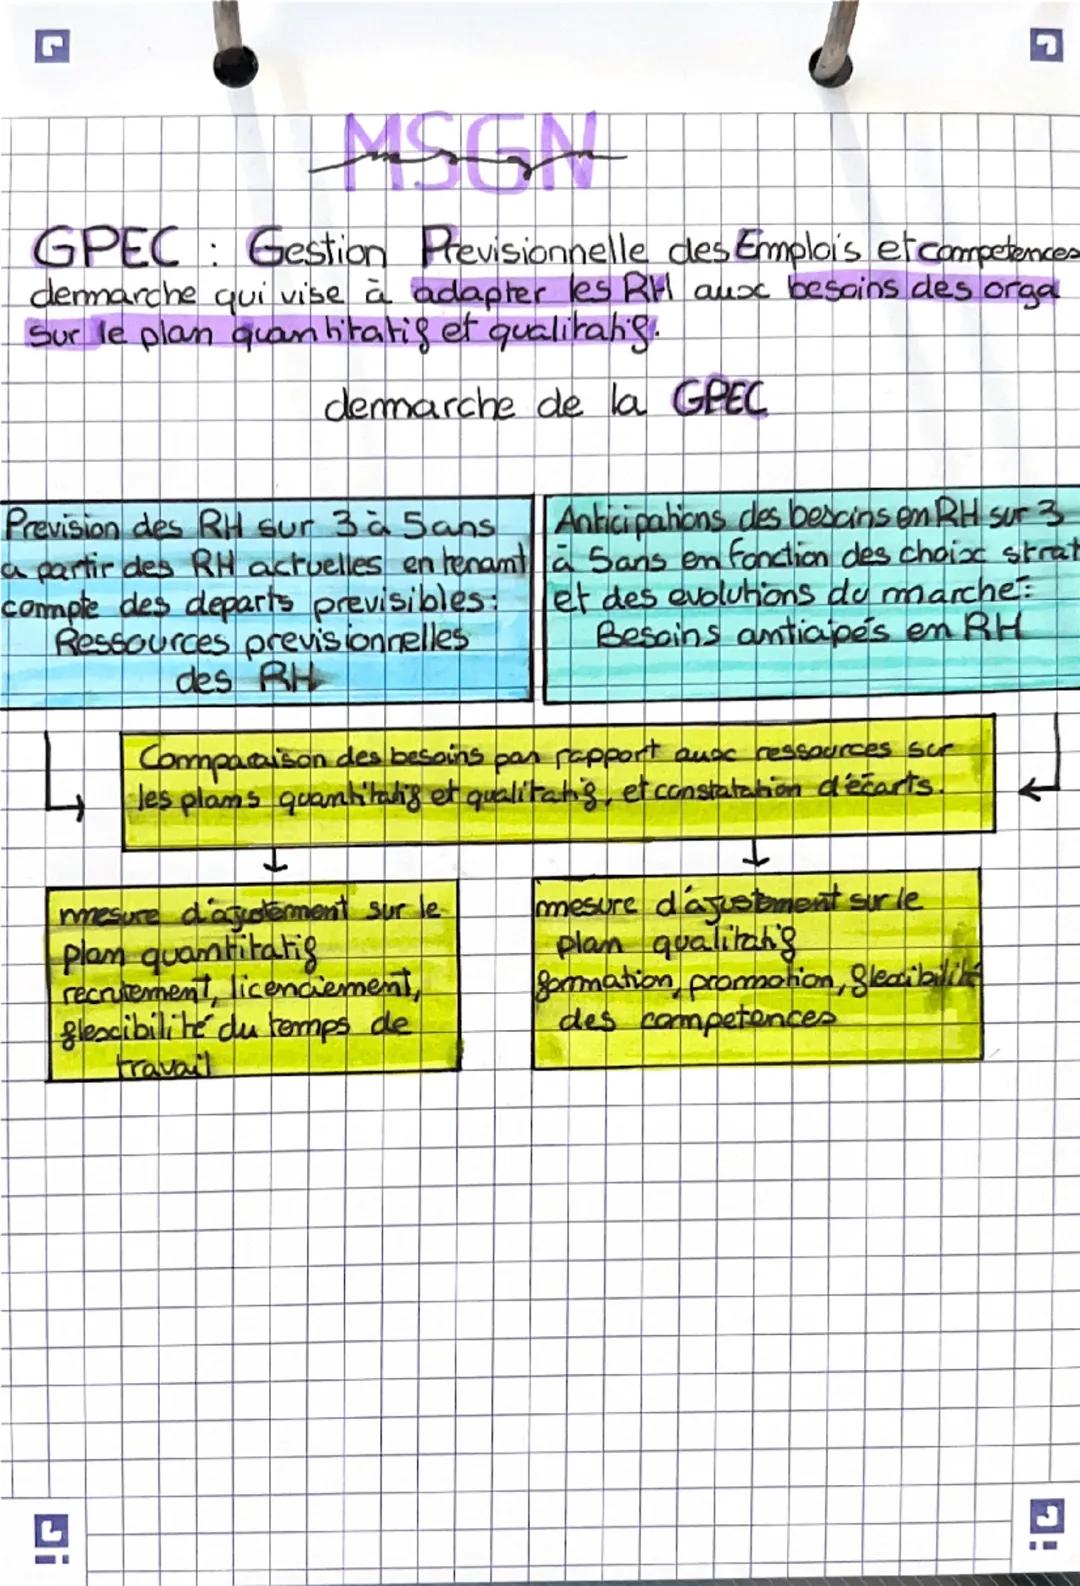 MSGN
GPEC : Gestion Previsionnelle des Emplois et competences
demarche qui vise à adapter les RH aux besoins des orga
sur le plan quantitatif et qualitatif.
demarche de la GPEC
Prevision des RH sur 3 à 5 ans
a partir des RH actuelles en tenant
compte des departs previsibles :
Ressources previsionnelles
des RH
Anticipations des besoins en RH sur 3
à 5 ans en fonction des choix strat
et des evolutions du marche :
Besoins anticipés en RH
Comparaison des besoins par rapport aux ressources sur
les plans quantitatif et qualitatif, et constatation d'écarts.
mesure d'ajustement sur le
plan quantitatif
recrutement, licenciement,
flexibilité du temps de
travail
mesure d'ajustement sur le
plan qualitatif
formation, promotion, flexibilité
des competences